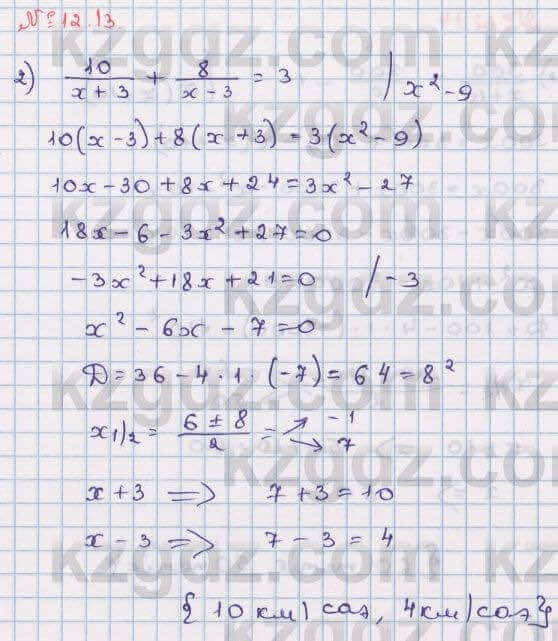 № 12.13.
2) 10/(x+3) + 8/(x-3) = 3 | x²-9
10(x-3)+8(x+3)=3(x²-9)
10x-30+8x+24=3x²-27
18x-6-3x²+27=0
-3x²+18x+21=0 /-3
x²-6x-7=0
D=36-4·1·(-7)=64=8²
x1/2= (6±8)/2 = ↗ -1 ↘ 7
x+3 => 7+3=10
x-3 => 7-3=4
{10км/сағ, 4км/сағ}
kzgdz.com